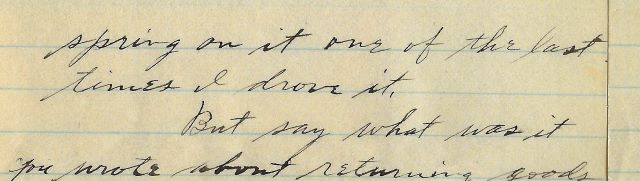 spring on it one of the last
times I drove it.
But say what was it
you wrote about returning goods